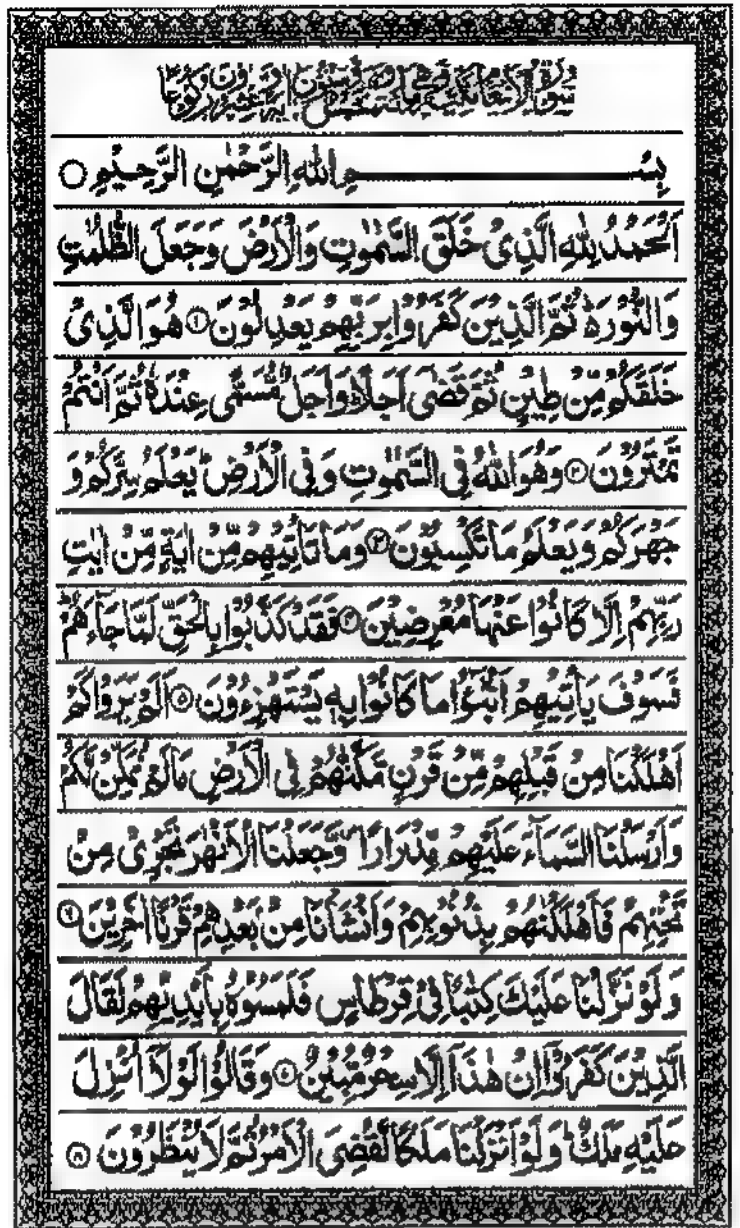 سورة الانعام مكية وهي مائة وخمس وستون اية وعشرون ركوعا
بِسْمِ اللهِ الرَّحْمٰنِ الرَّحِيْمِ ○
اَلْحَمْدُ لِلّٰهِ الَّذِىْ خَلَقَ السَّمٰوٰتِ وَالْاَرْضَ وَجَعَلَ الظُّلُمٰتِ
وَالنُّوْرَ ۬ؕ ثُمَّ الَّذِيْنَ كَفَرُوْا بِرَبِّهِمْ يَعْدِلُوْنَ ۝۱ هُوَ الَّذِىْ
خَلَقَكُمْ مِّنْ طِيْنٍ ثُمَّ قَضٰۤى اَجَلًا ؕ وَاَجَلٌ مُّسَمًّى عِنْدَهٗ ثُمَّ اَنْتُمْ
تَمْتَرُوْنَ ۝۲ وَهُوَ اللّٰهُ فِى السَّمٰوٰتِ وَفِى الْاَرْضِ ؕ يَعْلَمُ سِرَّكُمْ وَ
جَهْرَكُمْ وَيَعْلَمُ مَا تَكْسِبُوْنَ ۝۳ وَمَا تَاْتِيْهِمْ مِّنْ اٰيَةٍ مِّنْ اٰيٰتِ
رَبِّهِمْ اِلَّا كَانُوْا عَنْهَا مُعْرِضِيْنَ ۝۴ فَقَدْ كَذَّبُوْا بِالْحَقِّ لَمَّا جَآءَهُمْ ؕ
فَسَوْفَ يَاْتِيْهِمْ اَنْۢبٰٓؤُا مَا كَانُوْا بِهٖ يَسْتَهْزِءُوْنَ ۝۵ اَلَمْ يَرَوْا كَمْ
اَهْلَكْنَا مِنْ قَبْلِهِمْ مِّنْ قَرْنٍ مَّكَّنّٰهُمْ فِى الْاَرْضِ مَا لَمْ نُمَكِّنْ لَّكُمْ
وَاَرْسَلْنَا السَّمَآءَ عَلَيْهِمْ مِّدْرَارًا ۪ وَّجَعَلْنَا الْاَنْهٰرَ تَجْرِىْ مِنْ
تَحْتِهِمْ فَاَهْلَكْنٰهُمْ بِذُنُوْبِهِمْ وَاَنْشَاْنَا مِنْۢ بَعْدِهِمْ قَرْنًا اٰخَرِيْنَ ۝۶
وَلَوْ نَزَّلْنَا عَلَيْكَ كِتٰبًا فِىْ قِرْطَاسٍ فَلَمَسُوْهُ بِاَيْدِيْهِمْ لَقَالَ
الَّذِيْنَ كَفَرُوْۤا اِنْ هٰذَاۤ اِلَّا سِحْرٌ مُّبِيْنٌ ۝۷ وَقَالُوْا لَوْلَاۤ اُنْزِلَ
عَلَيْهِ مَلَكٌ ؕ وَلَوْ اَنْزَلْنَا مَلَكًا لَّقُضِىَ الْاَمْرُ ثُمَّ لَا يُنْظَرُوْنَ ۝۸